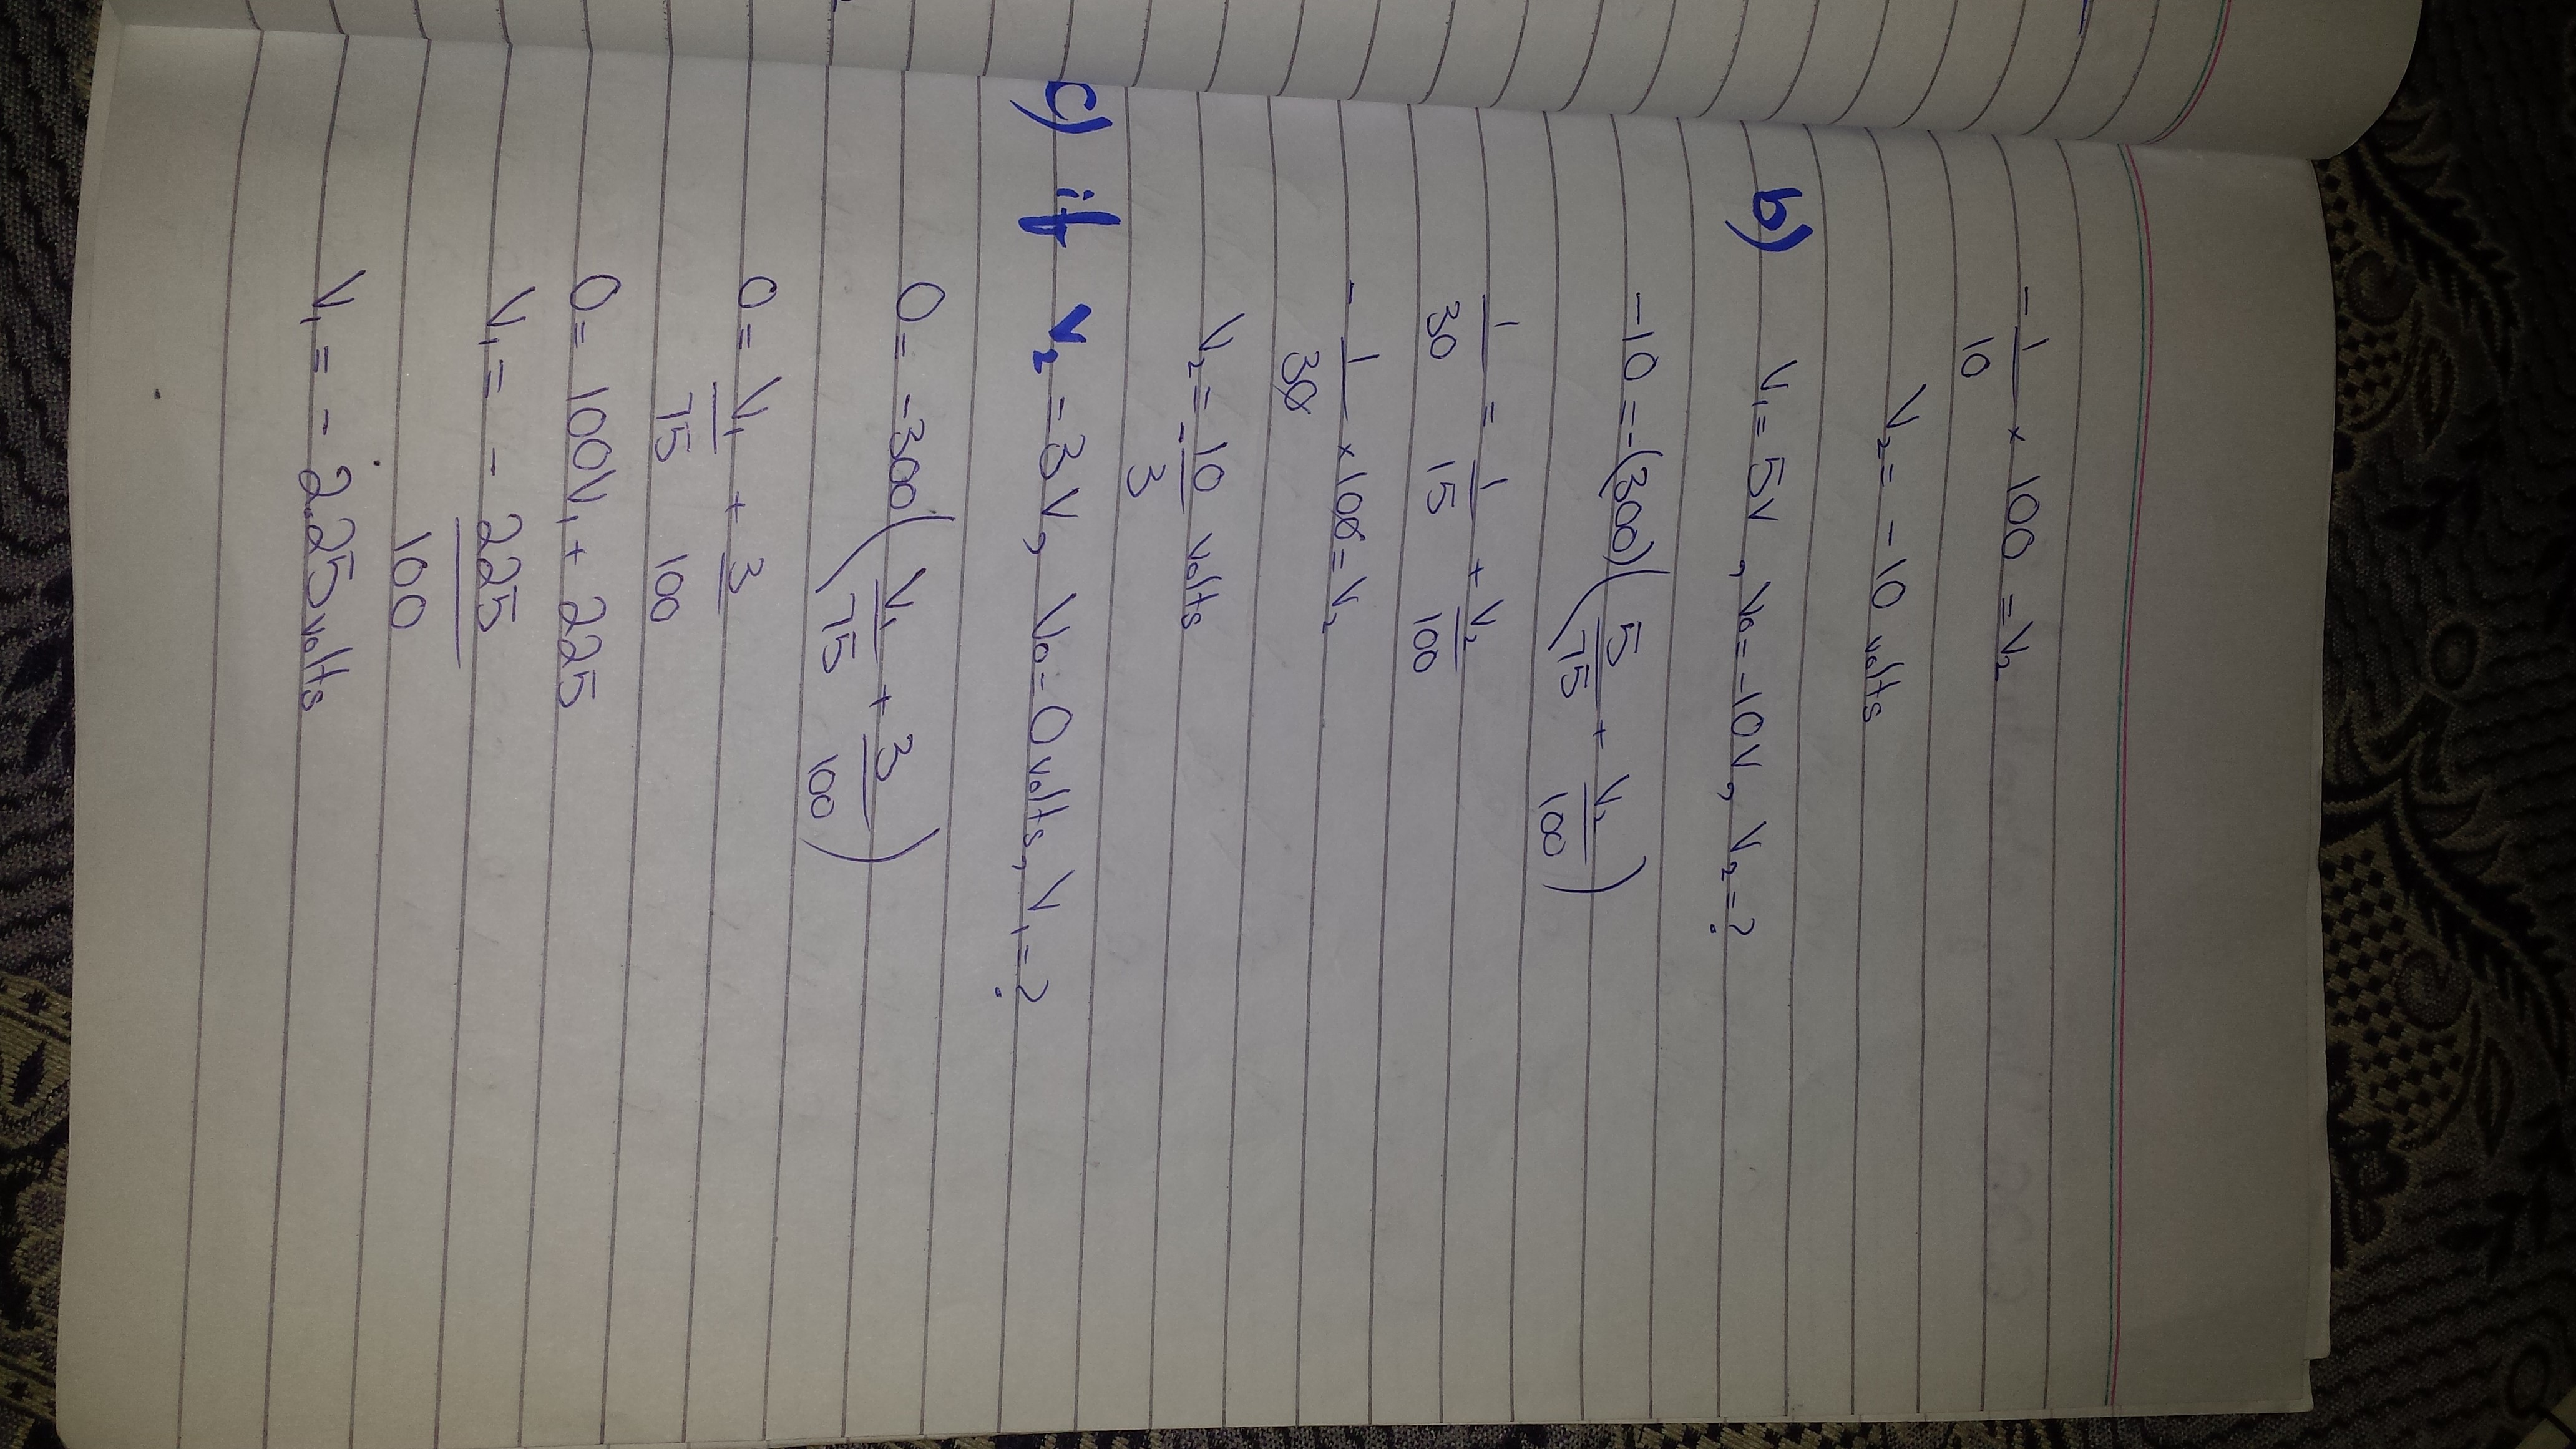 - 1/10 × 100 = V₂
V₂ = - 10 volts
b) V₁ = 5V, V₀ = -10V, V₂ = ?
-10 = -(300)(5/75 + V₂/100)
1/30 = 1/15 + V₂/100
- 1/30 × 100 = V₂
V₂ = - 10/3 volts
c) if V₂ = 3V, V₀ = 0 volts, V₁ = ?
0 = -300(V₁/75 + 3/100)
0 = V₁/75 + 3/100
0 = 100V₁ + 225
V₁ = - 225/100
V₁ = - 2.25 volts